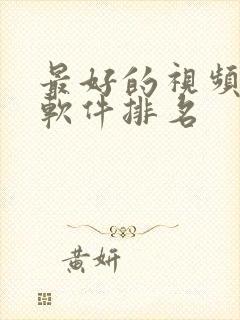 最好的視頻
軟件排名
黃妍